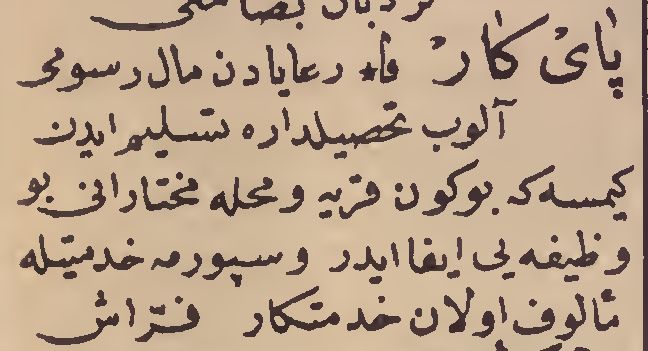 پاىْ كَارْ فا٭ رعايادن مال رسومى
آلوب تحصيلداره تسليم ايدن
كيمسه كه بوكون قريه ومحله مختارانى بو
وظيفه يى ايفا ايدر وسپورمه خدمتيله
مألوف اولان خدمتكار فرّاش